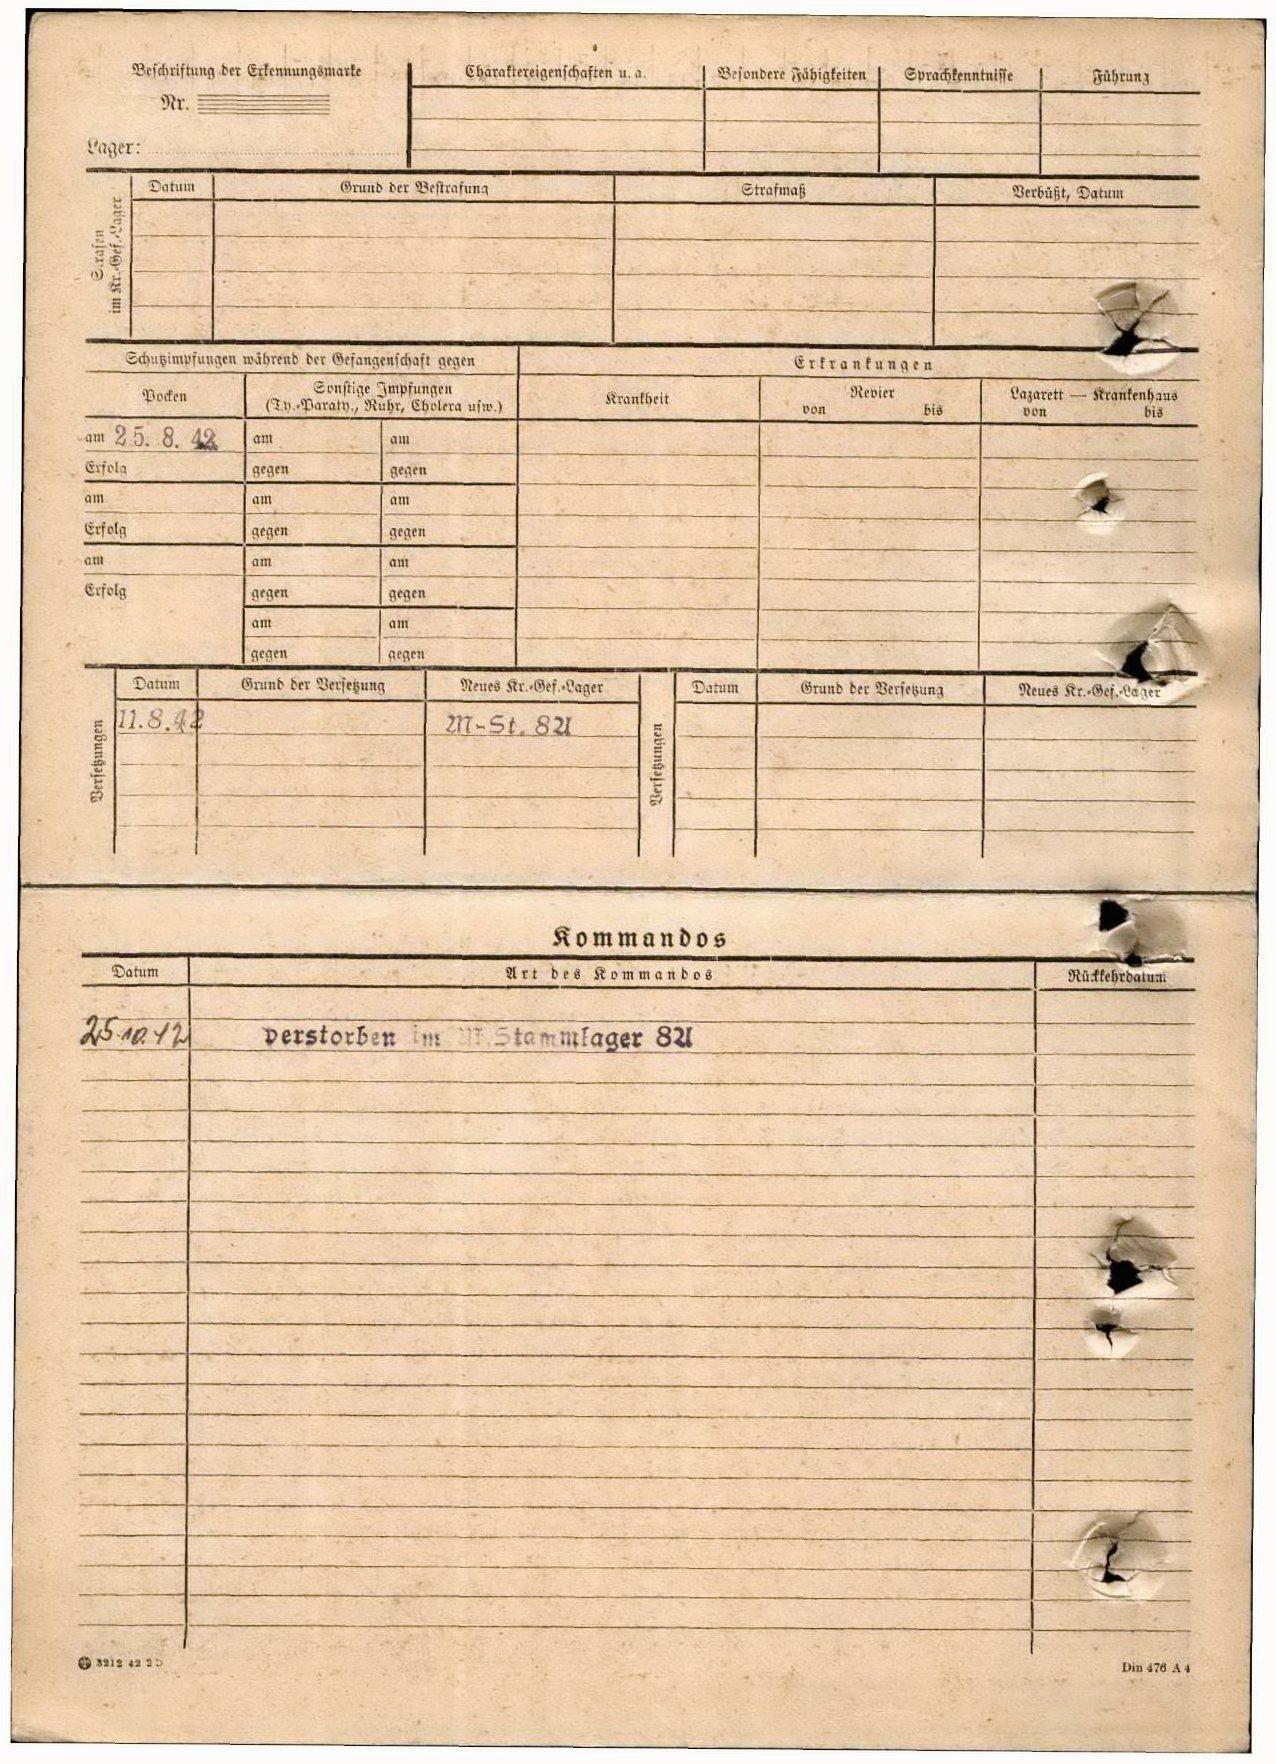 Beschriftung der Erkennungsmarke
Nr.
Lager:
Charaktereigenschaften u. a.
Besondere Fähigkeiten
Sprachkenntnisse
Führung
Strafen im Kr.-Gef.-Lager
Datum
Grund der Bestrafung
Strafmaß
Verbüßt, Datum
Schutzimpfungen während der Gefangenschaft gegen
Erkrankungen
Pocken
Sonstige Impfungen
(Ty.-Paraty., Ruhr, Cholera usw.)
Krankheit
Revier
von bis
Lazarett — Krankenhaus
von bis
am 25. 8. 42 am am
Erfolg gegen gegen
am am am
Erfolg gegen gegen
am am am
Erfolg gegen gegen
am am
gegen gegen
Versetzungen
Datum Grund der Versetzung Neues Kr.-Gef.-Lager
11.8.42 M-St. 8A
Versetzungen
Datum Grund der Versetzung Neues Kr.-Gef.-Lager
Kommandos
Datum Art des Kommandos Rückkehrdatum
25.10.42 verstorben im M.Stammlager 8A
3212 42 2 D
Din 476 A 4